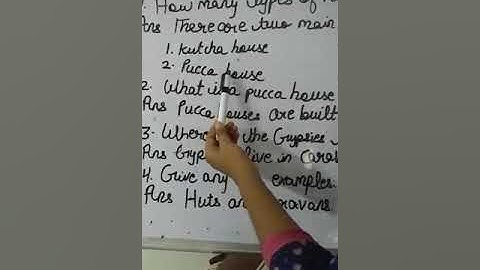 How many types of
Ans There are two main
1. Kutcha house
2. Pucca house
2. What is a pucca house
Ans Pucca houses are built
3. Where the Gypsies
Ans live in
4. Give any examples.
Ans Huts